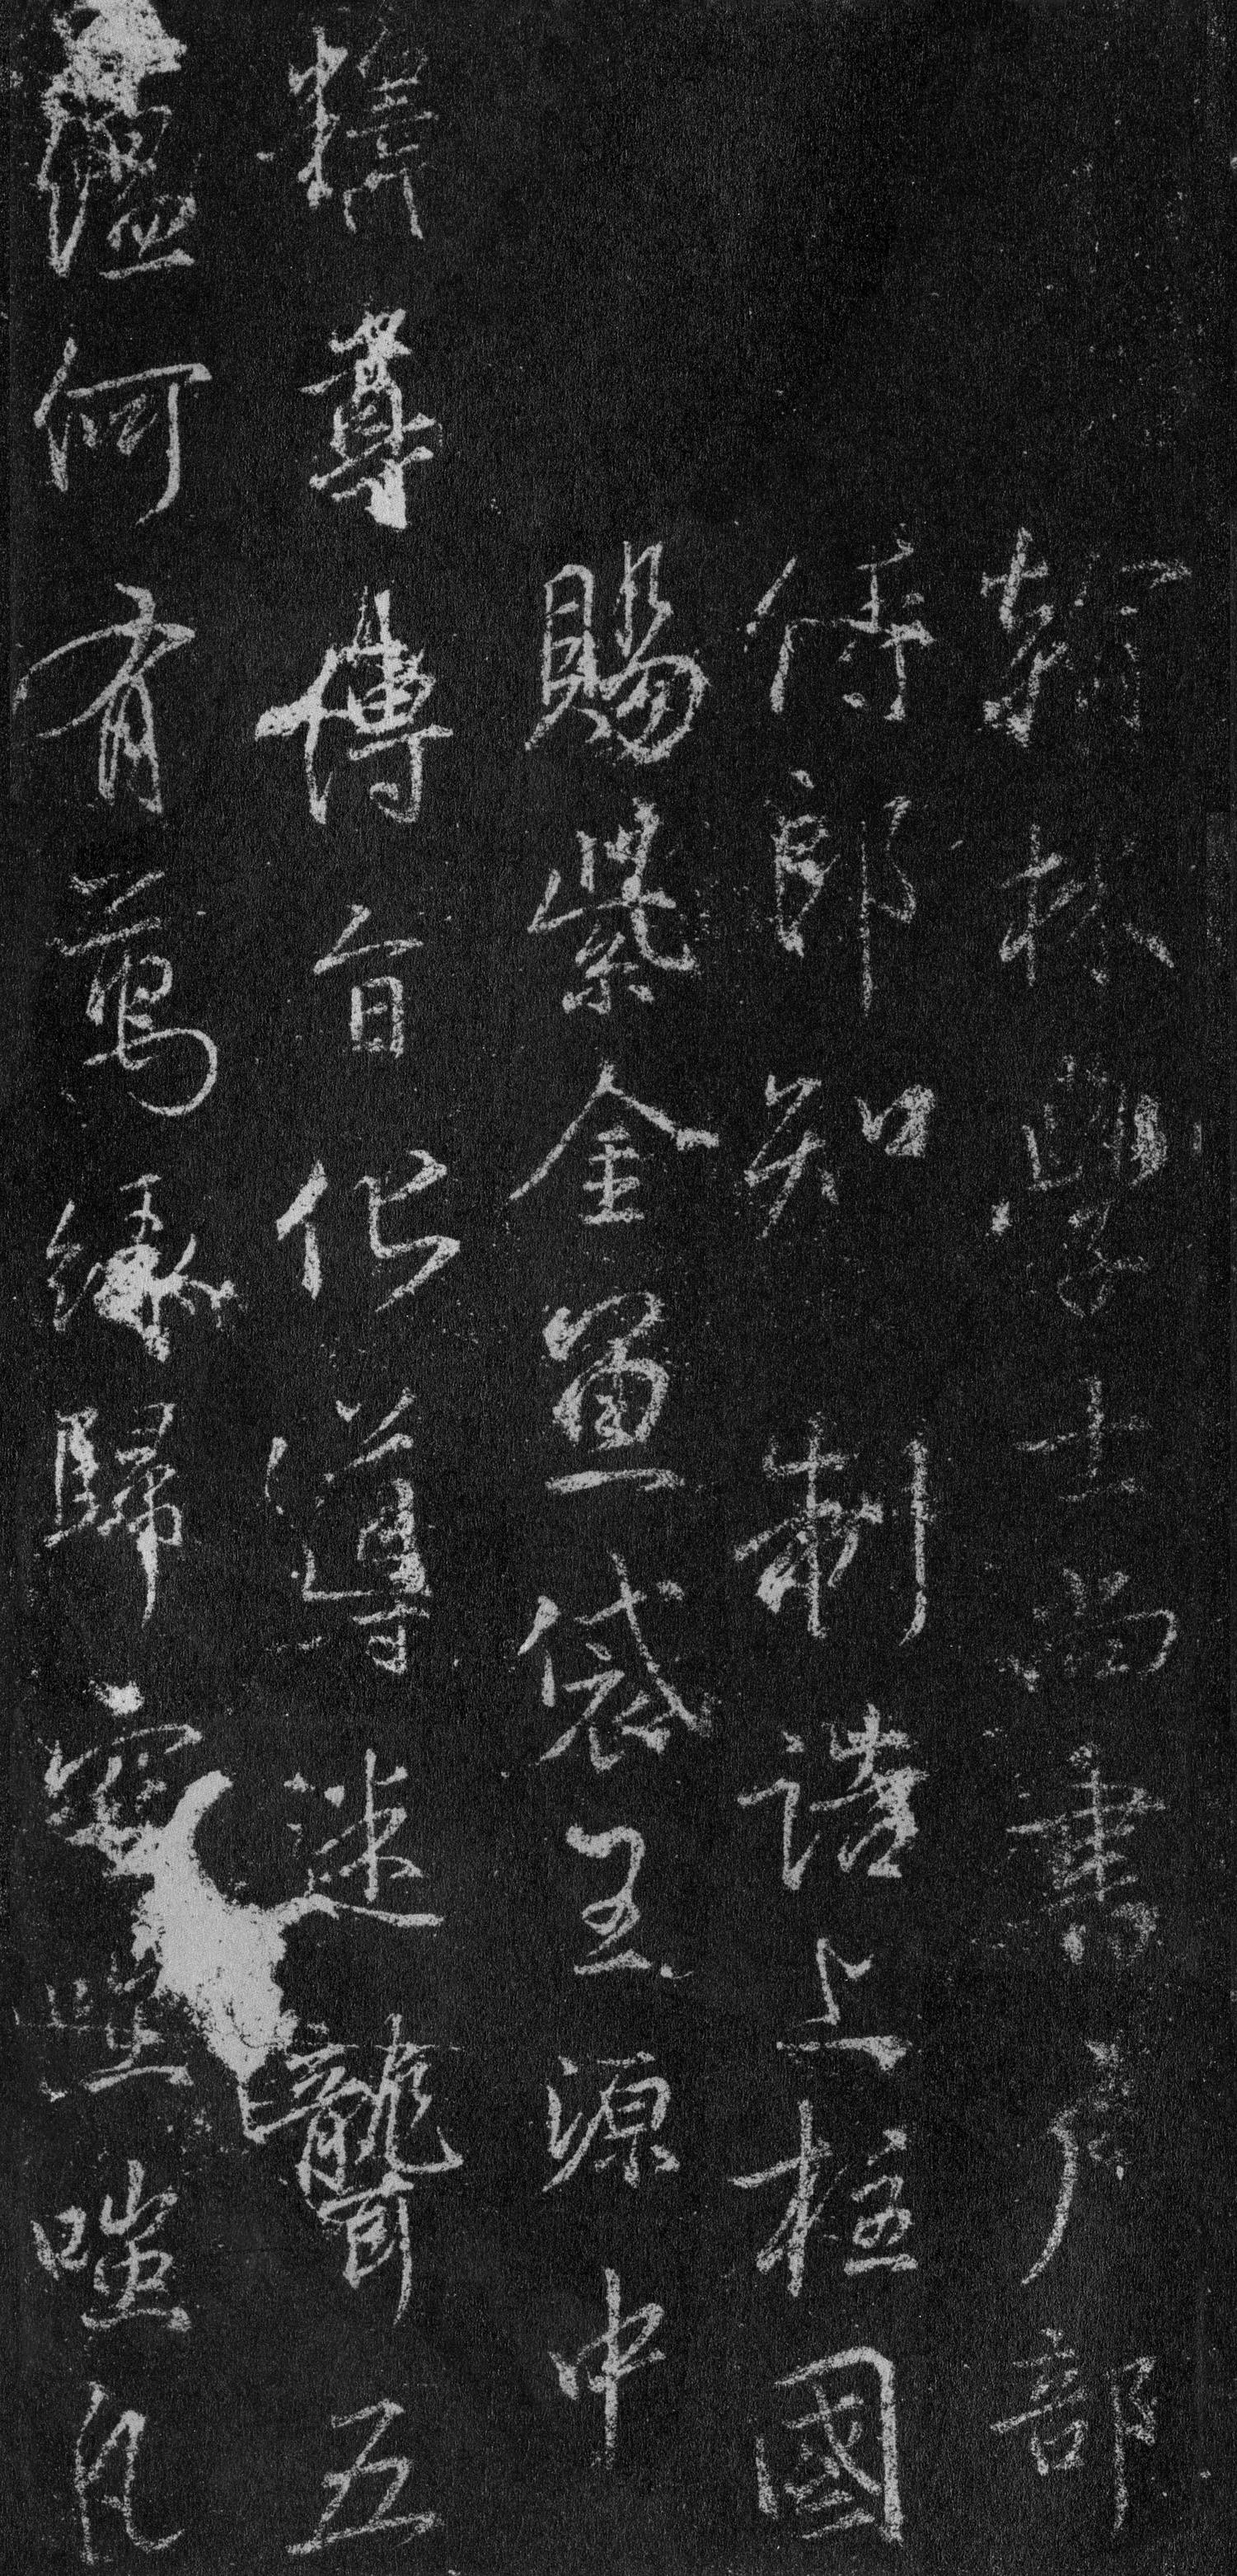 翰林學士尚書户部
侍郎知制誥上柱國
賜紫金魚袋王源中
釋尊傳旨化導迷聾五
蘊何有萬緣歸空嗤凡